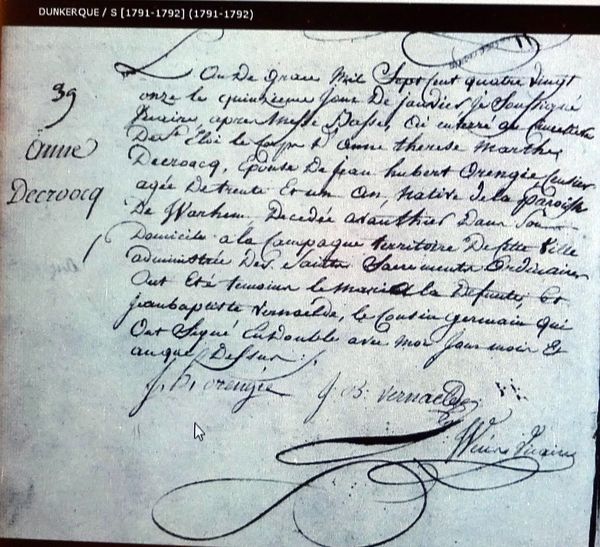 DUNKERQUE / S [1791-1792] (1791-1792)
39
Anne
Decroocq
L'An De grace Mil Sept cent quatre vingt
onze le quinzieme jour De janvier je Soussigné
Vicaire, apres Messe Basse, ai enterré au Cimetiere
De St Eloi le corps d' Anne therese Marthe
Decroocq, Epouse De jean hubert Orengie
agée De trente Et un An, native de la Paroisse
De Warhem, Decedée avanthier Dans Son
Domicile a la Campagne territoire De cette Ville
administrée Des Saints Sacrements Ordinaires
Ont Eté temoins le mari a la Defunte Et
jeanbaptiste Vernaelde, le Cousin germain qui
Ont Signé En double avec moi jour mois Et
an que Dessus :
j. h. orengie
J. B. Vernaelde
Vicaire